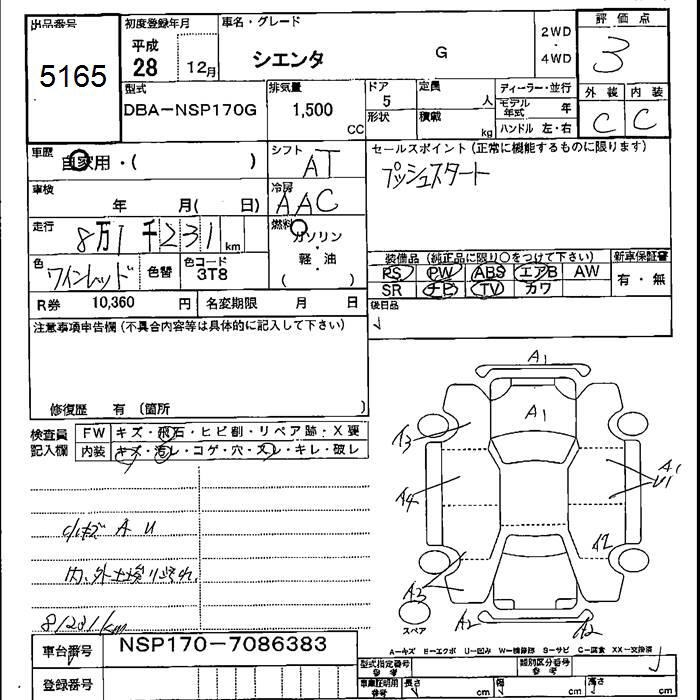 出品番号
5165
初度登録年月
平成
28 12月
車名・グレード
シエンタ G
2WD
・
4WD
評価点
3
型式
DBA-NSP170G
排気量
1,500
CC
ドア
5
形状
定員
人
積載
kg
ディーラー・並行
モデル年式 年
ハンドル 左・右
外装 内装
C C
車歴
自家用・( )
シフト
AT
セールスポイント(正常に機能するものに限ります)
プッシュスタート
車検
年 月( 日)
冷房
AAC
走行
8万1千231km
燃料
ガソリン
・
軽・油
( )
色
ワインレッド
色替
色コード
3T8
装備品 (純正品に限り○をつけて下さい)
新車保証書
PS PW ABS エアB AW
有・無
SR ナビ TV カワ
R券 10,360 円
名変期限 月 日
後日品
注意事項申告欄(不具合内容等は具体的に記入して下さい)
修復歴 有 (箇所 )
検査員
記入欄
FW キズ・飛石・ヒビ割・リペア跡・X要
内装 キズ・汚レ・コゲ・穴・スレ・キレ・破レ
小キズ A U
内、外
81231km
A1
A1
A3
A4
A1
U1
A2
A3
A2
A2
スペア
A-キズ E-エクボ U-凹み W-補修跡 S-サビ C-腐食 XX-交換済
車台番号
NSP170-7086383
登録番号
型式指定番号
参考
類別区分番号
参考
車庫証明用
参考
長さ cm
幅 cm
高さ cm